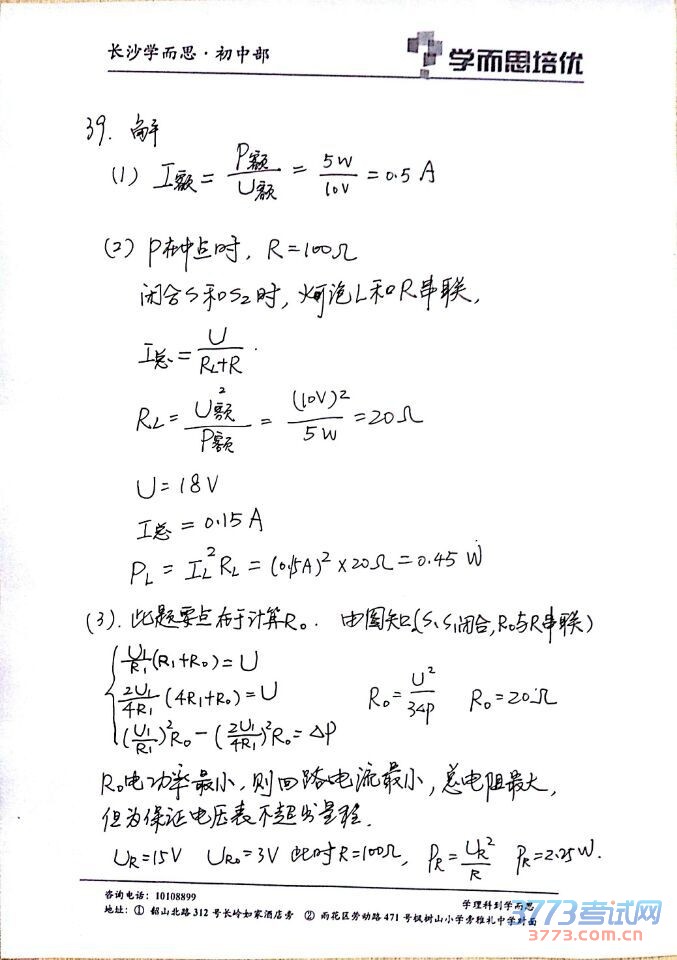 长沙学而思·初中部
学而思培优
39. 解
(1) I额 = P额/U额 = 5W/10V = 0.5 A
(2) P在中点时, R=100Ω
闭合S和S2时, 灯泡L和R串联,
I总 = U/(RL+R).
RL = U额²/P额 = (10V)²/5W = 20Ω
U = 18V
I总 = 0.15A
PL = IL²RL = (0.15A)²×20Ω = 0.45 W
(3). 此题要点在于计算R0. 由图知(S、S1闭合, R0与R串联)
{ U1/R1 (R1+R0) = U
2U1/4R1 (4R1+R0) = U
R0 = U²/3ΔP R0 = 20Ω
(U1/R1)²R0 - (2U1/4R1)²R0 = ΔP
R0电功率最小, 则回路电流最小, 总电阻最大,
但为保证电压表不超出量程.
UR=15V UR0=3V 此时R=100Ω, PR = UR²/R PR=2.25W.
咨询电话: 10108899
学理科到学而思
地址: ① 韶山北路312号长岭如家酒店旁 ② 雨花区劳动路471号枫树山小学旁雅礼中学对面
3773考试网
3773.com.cn